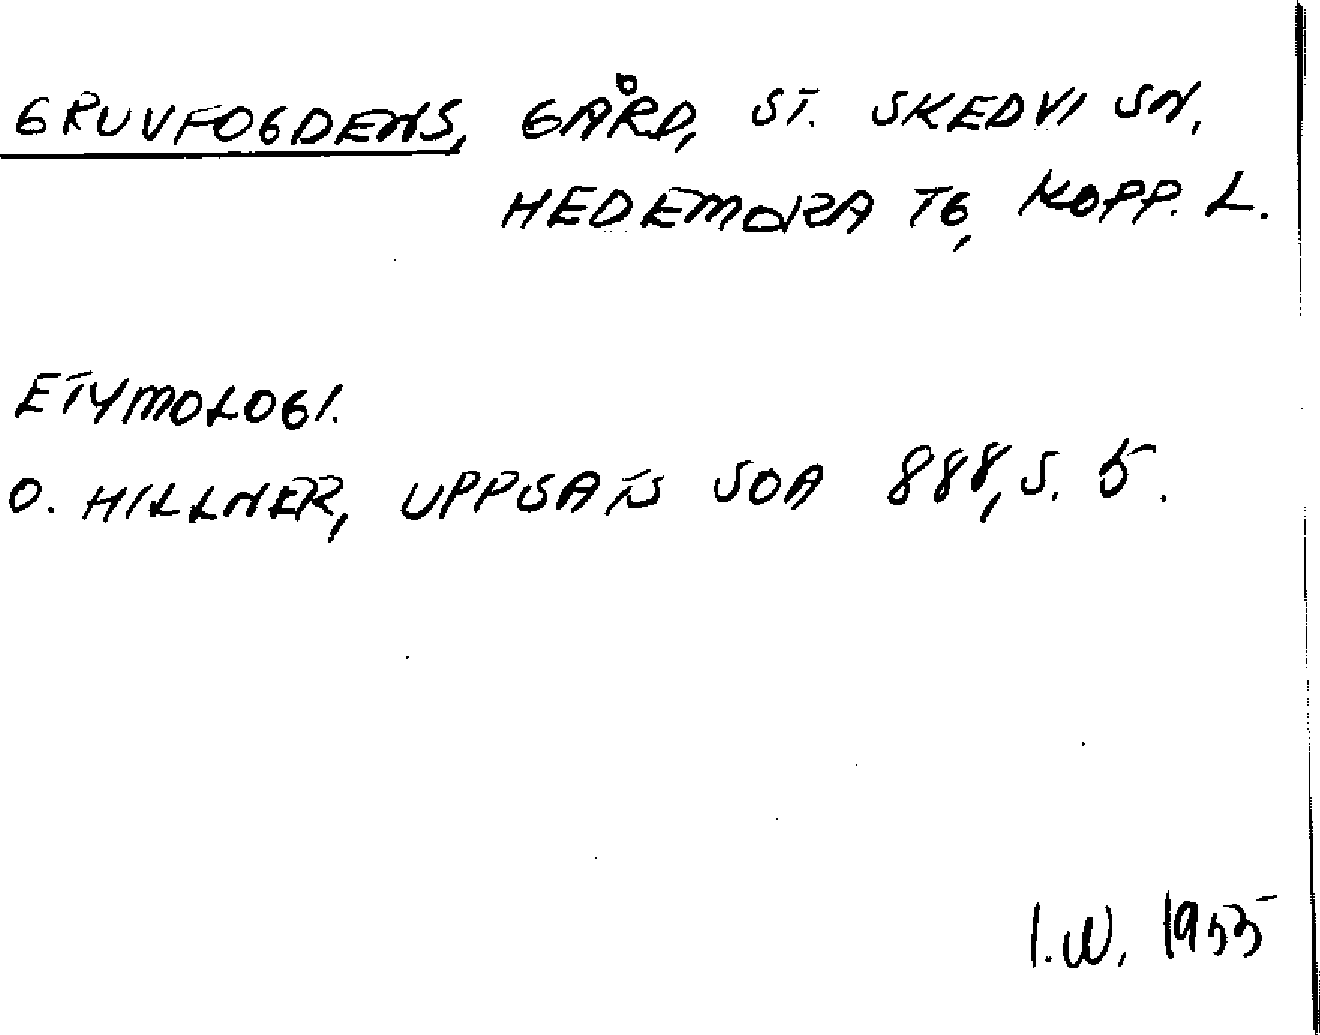 GRUVFOGDENS, GÅRD, ST. SKEDVI SN,
HEDEMORA TG, KOPP. L.
ETYMOLOGI.
O. HILLNER, UPPSATS SOA 888, S. 5.
I.W. 1955